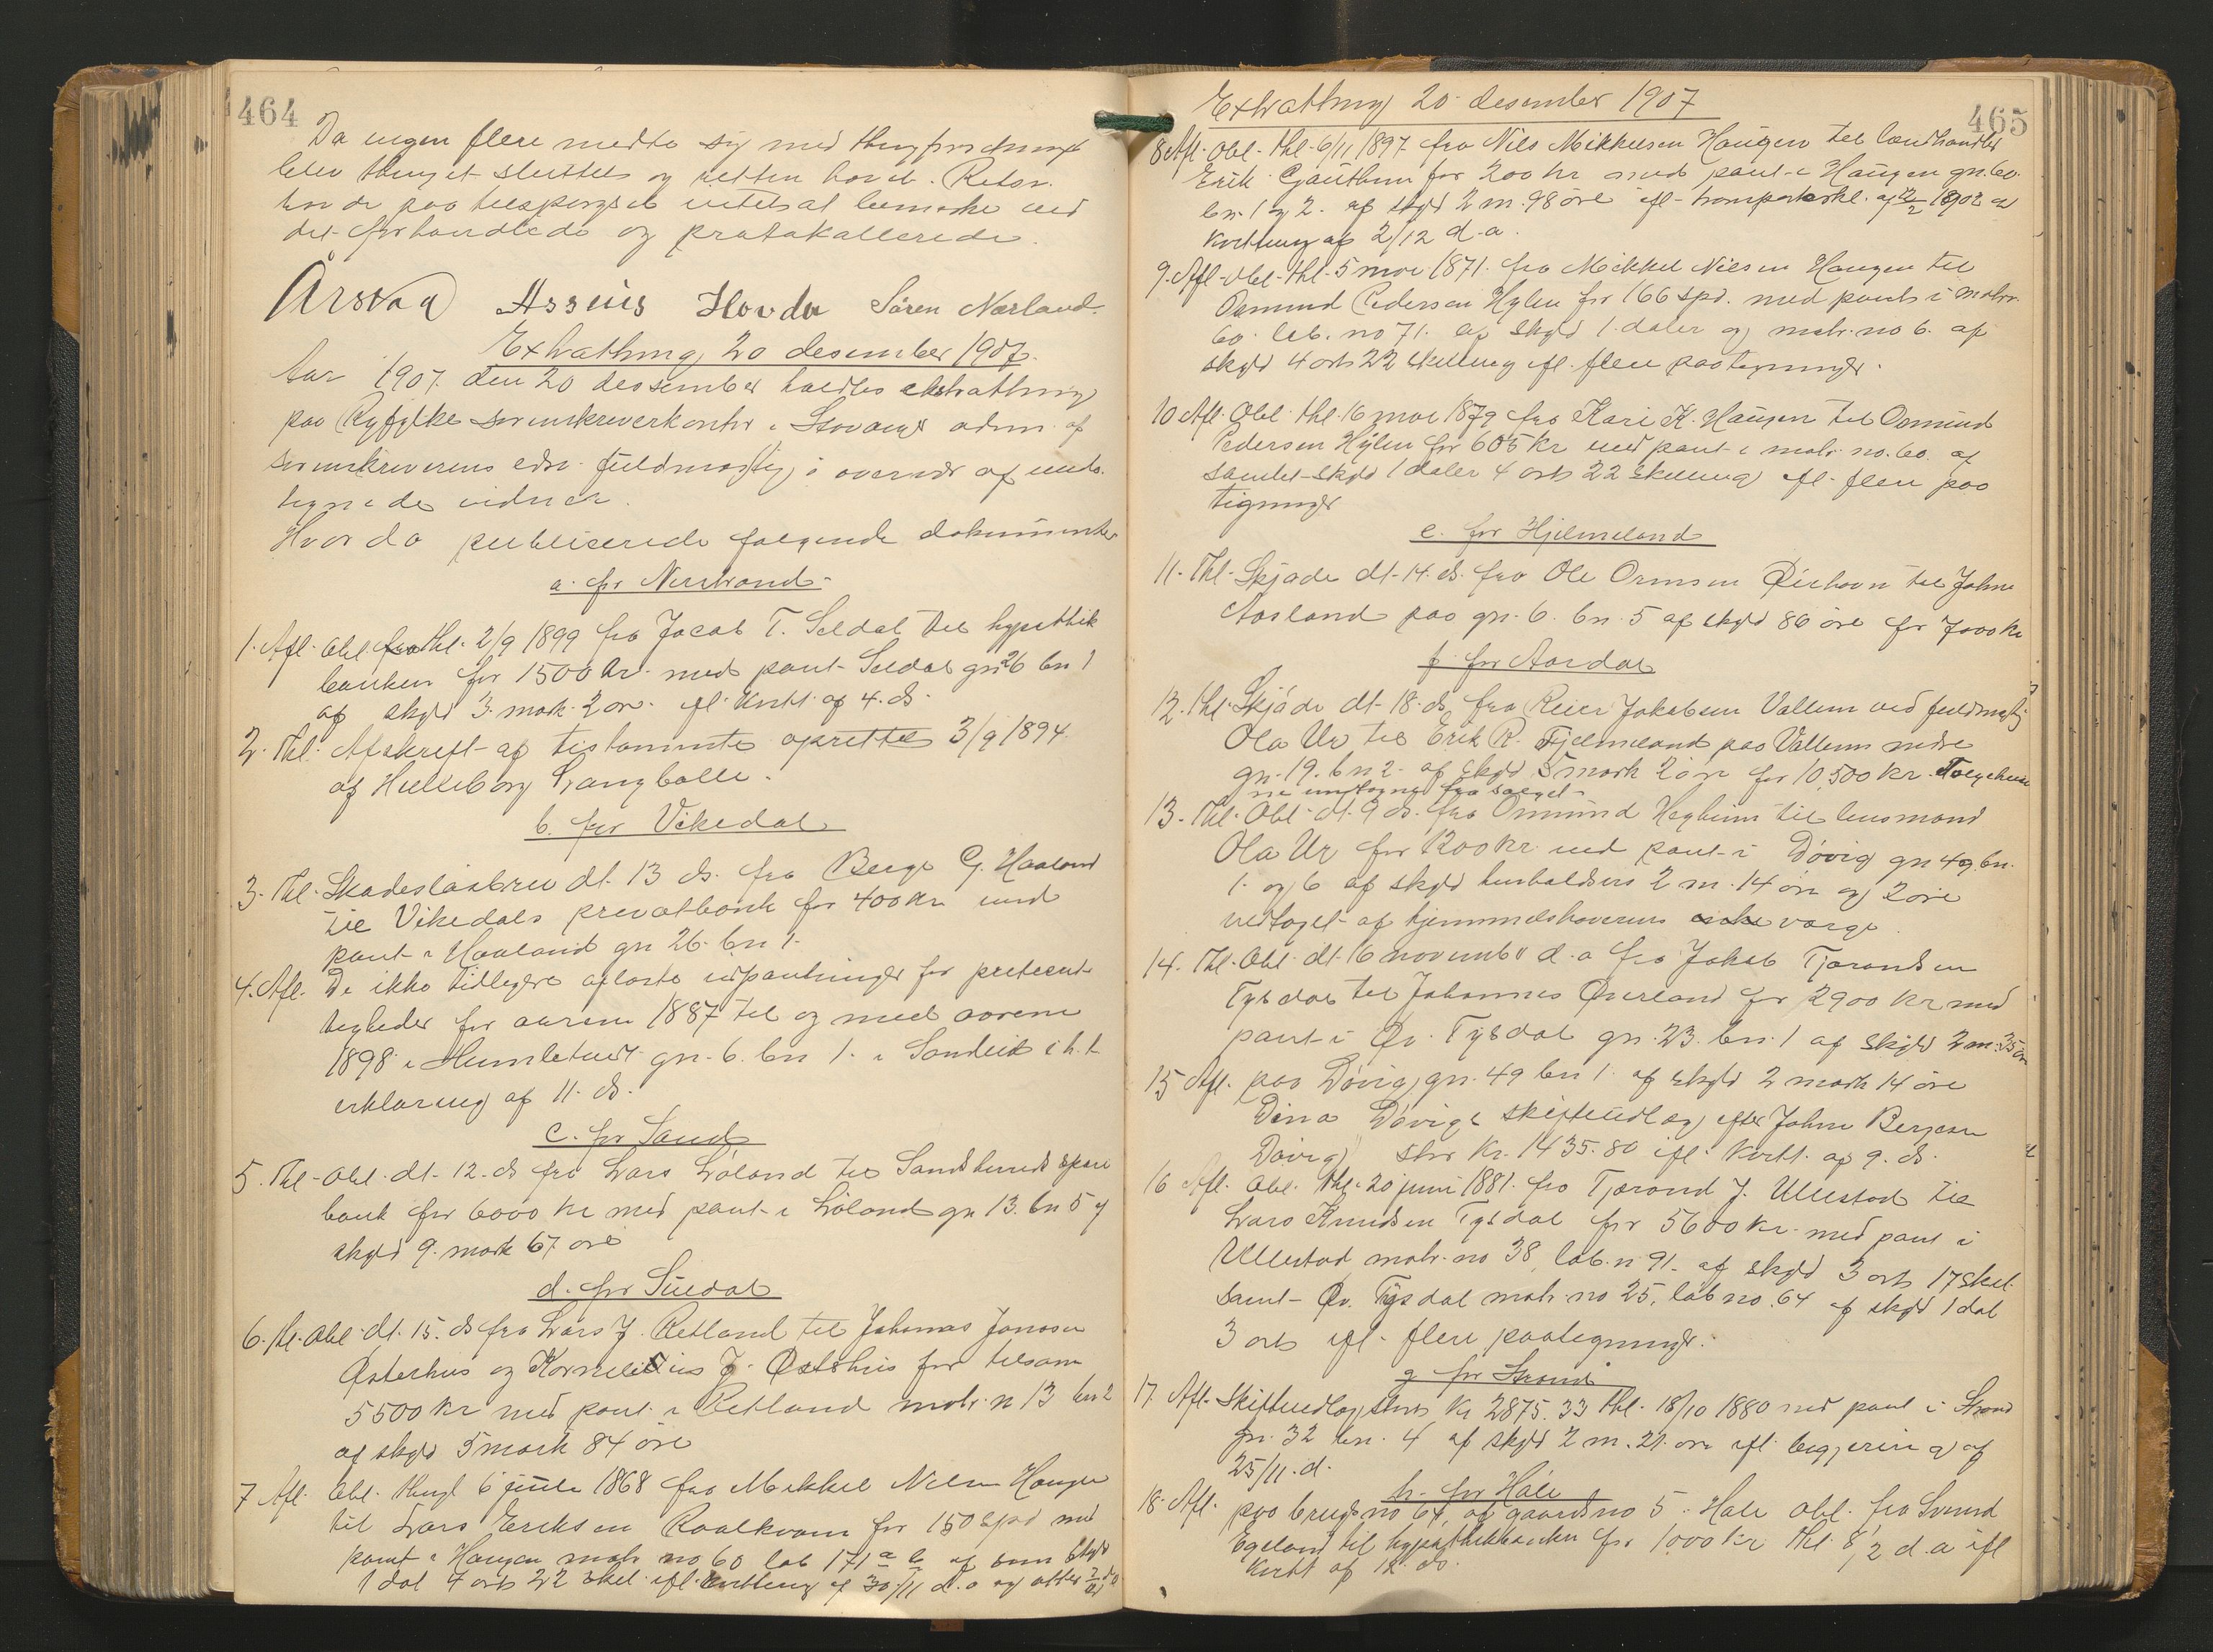 464
Da ingen flere meldte sig med thingforretninger
blev thinget sluttet og retten hævet. Retsv.
havde paa tilspørgsel intet at bemærke ved
det forhandlede og protokollerede.
Årsvåg Asseus Hovda Sören Nærland
Extrathing 20 desember 1907.
Aar 1907 den 20 desember holdtes ekstrathing
paa Ryfylke sorenskriverkontor i Stavanger adm. af
sorenskriverens edsv. fuldmægtig i overvær af undertegnede
vidner.
Hvorda publiserede følgende dokumenter
a. for Nerstrand
1. Afl. Obl. thl. 2/9 1899 fra Jacob T. Seldal til hypothek
banken for 1500 kr. med pant Seldal gn 26 bn 1
af skyld 3 mark 2 øre ifl. kvitt. af 4. ds.
2. Thl. Afskrift af testamente oprettet 3/9 1894
af Helleborg Langballe.
b. for Vikedal
3. Thl. Skadesløsbrev dt. 13 ds. fra Berge G. Haaland
til Vikedals privatbank for 400 kr med
pant i Haaland gn 26 bn 1.
4. Afl. De ikke tidligere aflæste udpantninger for præsteret-
tigheder for aarene 1887 til og med aarene
1898 i Humletvedt gn. 6. bn 1. i Sandeid i h.t.
erklæring af 11. ds.
c. for Sand
5. Thl. Obl. dt. 12. ds fra Lars Løland til Sands herreds spare
bank for 6000 kr med pant i Løland gn 13. bn 5 af
skyld 9. mark 67 øre
d. for Suldal
6. thl. Obl. dt. 15. ds fra Lars J. Retland til Johannes Jonasen
Østerhus og Kornelius J. Østerhus for tilsam
5500 kr med pant i Retland matr. n 13 bn 2
af skyld 5 mark 84 øre
7 Afl. Obl. thingl 6 juli 1868 fra Mikkel Nilsen Haugen
til Lars Eriksen Roalkvam for 150 spd med
pant i Haugen matr no 60 lab 171 a b af sam skyld
1 dal 4 ort 22 skil. ifl. kvittering af 30/11 d.a og atter
465
Extrathing 20 desember 1907
8 Afl. Obl. thl. 6/11 1897 fra Nils Mikkelsen Haugen til landhandler
Erik Gauthun for 200 kr med pant i Haugen gn. 60.
bn. 1 og 2. af skyld 2 m. 98 øre ifl. transporterkl. af 1902 og
kvittering af 2/12 d.a.
9. Afl. Obl. thl. 5 mai 1871 fra Mikkel Nilsen Haugen til
Osmund Pedersen Hylen for 166 spd. med pant i matr.
60. lab. no 71. af skyld 1. daler og matr. no 6. af
skyld 4 ort 22 skilling ifl. flere paategninger.
10 Afl. Obl. thl. 16 mai 1879 fra Kari K. Haugen til Osmund
Pedersen Hylen for 605 kr med pant i matr. no. 60. af
samlet skyld 1 daler 4 ort 22 skilling ifl. flere paa
tegninger
e. for Hjelmeland
11. Thl. Skjøde dt. 14. ds. fra Ole Ormsen til John
Aasland paa gn. 6. bn. 5 af skyld 86 øre for 7000 kr
f. for Aardal
12. thl. Skjøde dt. 18. ds. fra Reier Jakobsen Vallem ved fuldmægtig
Ola Ur til Erik R. Fjelmeland paa Vallem nedre
gn. 19. bn 2. af skyld 5 mark 2 øre for 10,500 kr.
undtagne fra salget.
13. Thl. Obl. dt. 9 ds. fra Osmund Hegheim til lensmand
Ola Ur for 1200 kr med pant i Døvig gn 49. bn.
1. og 6 af skyld henholdsvis 2 m. 14 øre og 2 øre
vedtaget af hjemmelshaverens værge.
14. Thl. Obl. dt. 16 november d.a fra Jakob Tjørandsen
Tysdal til Johannes Øverland for 2900 kr med
pant i Øv. Tysdal gn. 23. bn. 1 af skyld 2 m. 35 øre
15 Afl. paa Døvig, gn. 49 bn 1. af skyld 2 mark 14 øre
Dina Døvigs skifteudlæg efter John Bergesen
Døvig stor kr. 1435.80 ifl. kvitt. af 9. ds.
16 Afl. Obl. thl. 20 juni 1881. fra Tjørand J. Ullestad til
Lars Knudsen Tysdal for 5600 kr. med pant i
Ullestad matr. no 38, lab. n 91. af skyld 3 ort 17 skil.
samt Øv. Tysdal matr. no 25, lab no. 64 af skyld 1 dal
3 ort ifl. flere paategninger.
g. for Strand
17. Afl. Skifteudlæg stort kr 2875.33 thl. 18/10 1880 med pant i Strand
gn. 32 bn. 4 af skyld 2 m. 21. øre ifl. begjæring af
25/11. d.
h. for Hále
18. Afl. paa brugsno 64, af gaardsno 5. Hale obl. fra Svend
Egeland til hypothekbanken for 1000 kr thl. 8/2 d.a ifl
kvitt af 12. ds.